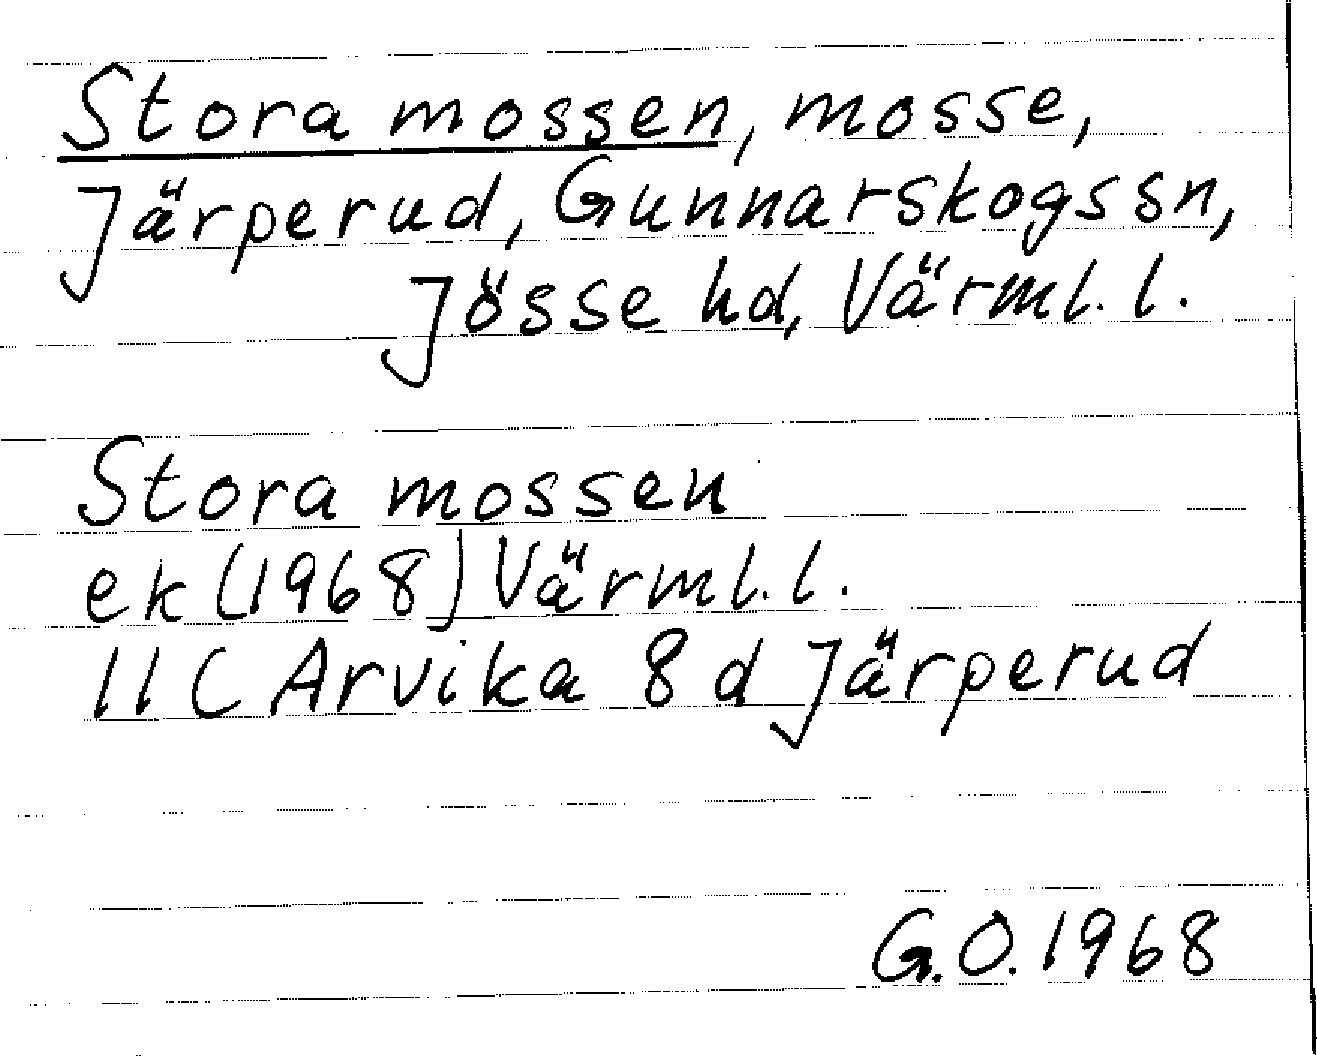 Stora mossen, mosse,
Järperud, Gunnarskogs sn,
Jösse hd, Värml. l.
Stora mossen
ek (1968) Värml. l.
11 C Arvika 8 d Järperud
G.O. 1968